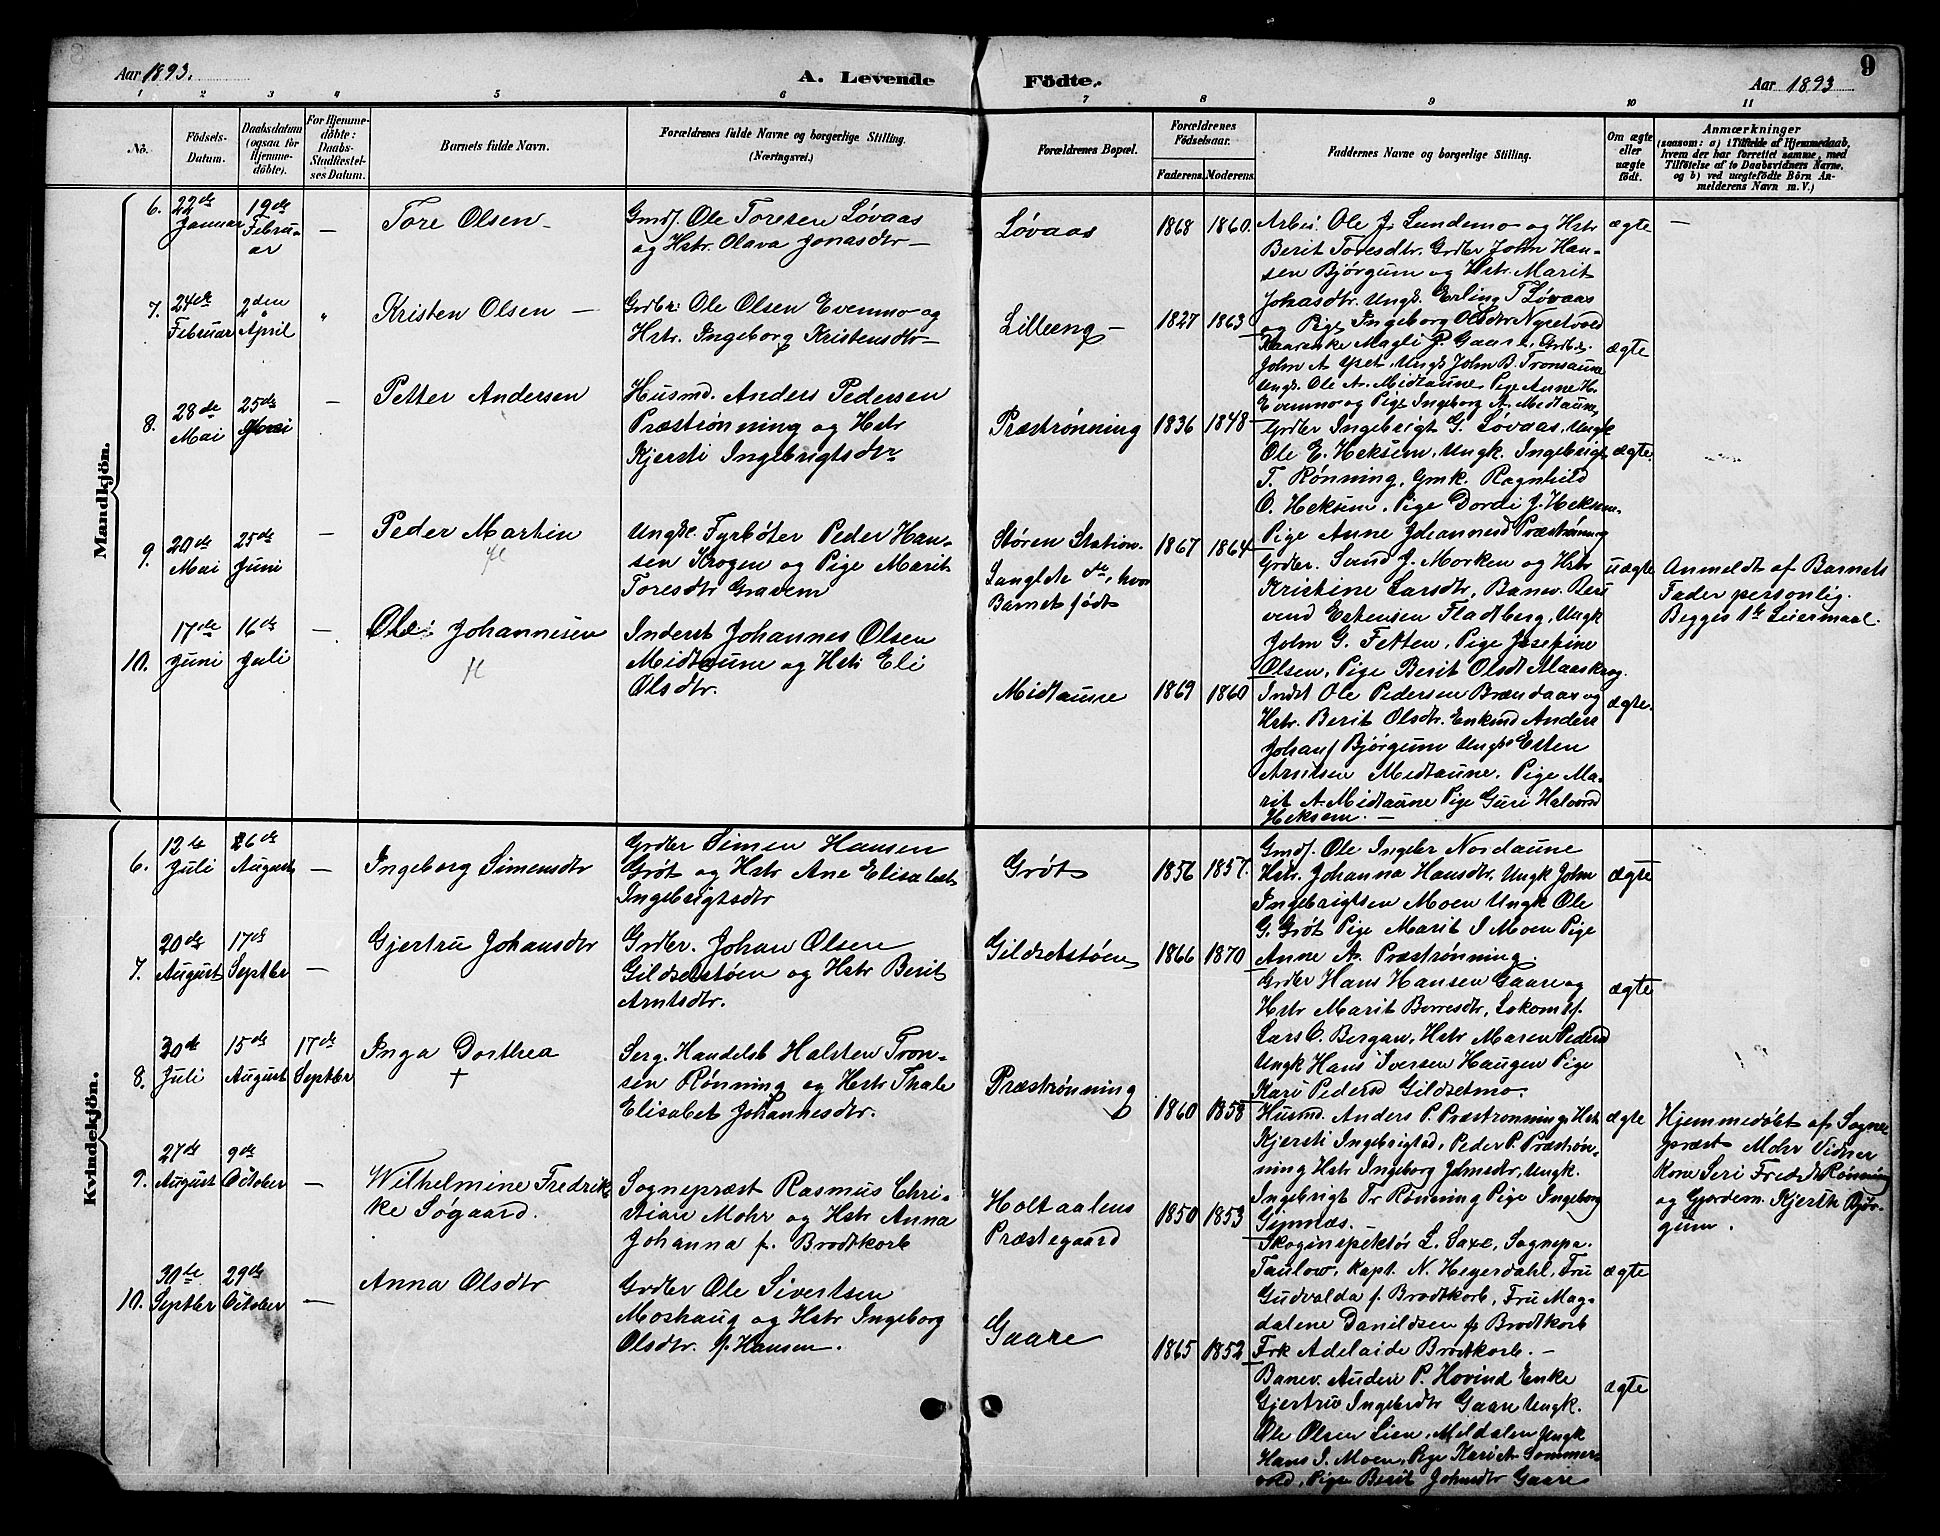 Aar 1893.
A. Levende Födte.
Aar 1893
9
1 2 3 4 5 6 7 8 9 10 11
No.
Födsels-
Datum.
Daabsdatum
(ogsaa for
Hjemme-
döbte).
For Hjemme-
döbte:
Daabs-
Stadfæstel-
ses Datum.
Barnets fulde Navn.
Forældrenes fulde Navne og borgerlige Stilling.
(Næringsvei.)
Forældrenes Bopæl.
Forældrenes
Födselsaar.
Faderens. Moderens.
Faddernes Navne og borgerlige Stilling.
Om ægte
eller
uægte
født.
Anmærkninger
(saasom: a) i Tilfælde af Hjemmedaab,
hvem der har forrettet samme, med
Tilföielse af to Daabsvidners Navne,
og b) ved uægtefödte Börn An-
melderens Navn m. V.)
Mandkjön.
6.
22de
Januar
19de
Febru-
ar
—
Tore Olsen —
Gmdf. Ole Toresen Løvaas
og Hstr. Olava Jonasdtr —
Løvaas
1868 1860.
Arbei. Ole J. Lundemo og Hstr
Berit Toresdtr. Grdbr John Han-
sen Bjørgum og Hstr. Marit
Johasdtr. Ungk. Erling T Løvaas
og Pige Ingeborg Olsdtr Nyretvold
ægte
—
7.
24de
Februar
2den
April
"
Kristen Olsen —
Grdbr: Ole Olsen Evenmo og
Hstr. Ingeborg Kristensdtr —
Lilleeng —
1827 1863
Magli P. Gaare, Grdbr.
John A Yset, Ungk John B. Tronsaune
Ungk. Ole A. Midtaune, Pige Anne H.
Evenmo og Pige Ingeborg A. Midtaune,
ægte
8.
28de
Mai
25de
—
Petter Andersen
Husmd. Anders Pedersen
Præstrønning og Hstr
Kjersti Ingebrigtsdtr
Præstrønning
1836 1848
Grdbr Ingebrigt G. Løvaas, Ungk
Ole E. Heksem, Ungk. Ingebrigt
T. Rønning, Gmk. Ragnhild
O. Heksem, Pige Dordi J. Heksem
Pige Anne Johannesd Præstrønning
ægte.
9.
20de
Mai
25de
Juni
—
Peder Martin
Ungk. Fyrbøter Peder Han-
sen Krogen og Pige Marit
Toresdtr Gravem
Støren Station.
Langlete do, hvor
Barnet født
1867 1864
Grdbr. Svend J. Morken og Hstr
Kristine Larsdtr, Banev. Beri
vend Estensen Fladberg, Ungk
John G. Fetten, Pige Josefine
Olsen, Pige Berit Olsdt Maaskrog.
uægte
Anmeldt af Barnets
Fader personlig.
Begges 1te Leiermaal.
10.
17de
Juni
16de
Juli
—
Ole Johannesen
Inderst Johannes Olsen
Midtaune og Hstr Eli
Olsdtr.
Midtaune
1869 1860
Indst Ole Pedersen Brændaas og
Hstr. Berit Olsdtr. Enkmd Anders
Bjørgum Ungk Esten
Arntsen Midtaune, Pige Ma-
rit A. Midtaune Pige Guri Halvorsd
Heksem. —
ægte.
Kvindekjön.
6.
12te
Juli
26de
August
—
Ingeborg Simensdtr
Grdbr Simen Hansen
Grøt og Hstr Ane Elisabet
Ingebrigtsdtr
Grøt
1856 1857.
Gmdf. Ole Ingebr Nordaune
Hstr. Johanna Hansdtr, Ungk John
Ingebrigtsen Moen Ungk Ole
G. Grøt Pige Marit I Moen Pige
Anne A. Præstrønning.
ægte
7.
20de
August
17de
Septbr
—
Gjertru Johansdtr
Grdbr. Johan Olsen
Gildsetstøen og Hstr Berit
Arntsdtr.
Gildsetstøen
1866 1870
Grdbr Hans Hansen Gaare og
Hstr Marit Borresdtr, Lokomtf.
Lars O. Bergan, Hstr Maren Pedersd
Ungk Hans Iversen Haugen Pige
Kari Pedersd Gildsetmo.
ægte
8.
30de
Juli
15de
August
17de
Septbr
Inga Dorthea
+
Serg. Handelsb Halsten Tron-
sen Rønning og Hstr Thale
Elisabet Johannesdtr.
Præstrønning
1860 1858
Husmd. Anders P. Præstrønning, Hstr
Kjersti Ingebrigtsd, Peder P. Præstrøn-
ning Hstr Ingeborg Johnsdtr, Ungk.
Ingebrigt Tr Rønning Pige Ingeborg
Gimnæs. —
ægte
Hjemmedøbt af Sogne
præst Mohr Vidner
Kone Seri Fredr Rønning
og Gjordem. Kjersti Bjør-
gum.
9.
27de
August
9de
October
—
Wilhelmine Fredrik
ke Søgaard.
Sognepræst Rasmus Chri-
stian Mohr og Hstr Anna
Johanna f. Brodtkorb
Holtaalens
Præstegaard
1850 1853
Skoginspektør L. Saxe, Sognepr.
Taulow, Kapt. N. Heyerdahl, Fru
Gudvalda f. Brodtkorb, Fru Mag-
dalene Danildsen f. Brodtkorb
Frk Adelaide Brodtkorb. —
ægte
10.
30te
Septbr
29de
October
—
Anna Olsdtr
Grdbr Ole Sivertsen
Moshaug og Hstr Ingeborg
Olsdtr. f. Hansen.
Gaare
1865 1852
Banev. Anders P. Hovind, Enke
Gjertru Ingebrdtr Gaare Ungk.
Ole Olsen Lien, Meldalen Ungk
Hans I. Moen, Pige Sommer-
vold, Pige Berit Johnsdtr Gaare
ægte